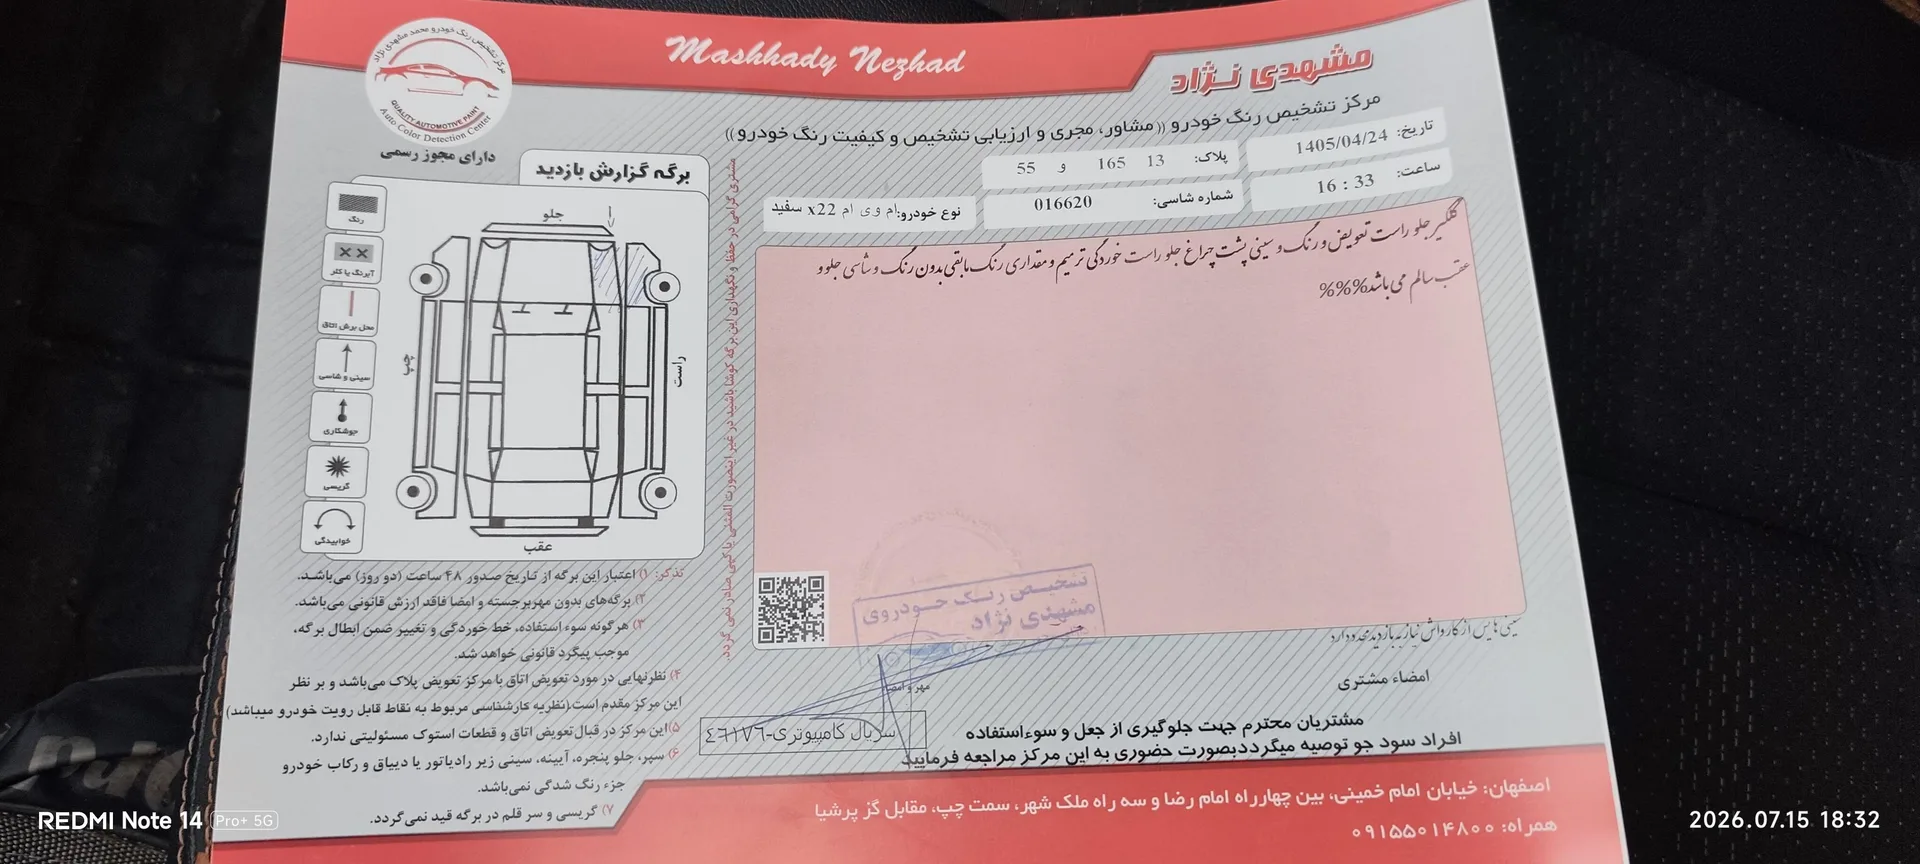 Mashhady Nezhad
مشهدی نژاد
مرکز تشخیص رنگ خودرو محمد مشهدی نژاد
QUALITY AUTOMOTIVE PAINT
Auto Color Detection Center
دارای مجوز رسمی
مرکز تشخیص رنگ خودرو ((مشاور، مجری و ارزیابی تشخیص و کیفیت رنگ خودرو))
تاریخ: 1405/04/24
ساعت: 16 : 33
پلاک: 13 165 و 55
شماره شاسی: 016620
نوع خودرو:ام وی ام x22 سفید
گلگیر جلو راست تعویض و رنگ و سینی پشت چراغ جلو راست خوردگی ترمیم و مقداری رنگ مابقی بدون رنگ و شاسی جلو و
عقب سالم می باشد%%%
برگه گزارش بازدید
رنگ
آبرنگ یا کلر
محل برش اتاق
سینی و شاسی
جوشکاری
گریسی
خوابیدگی
جلو
چپ
راست
عقب
مشتری گرامی در حفظ و نگهداری این برگه کوشا باشید در غیر اینصورت المثنی یا کپی صادر نمی گردد.
تذکر: ۱) اعتبار این برگه از تاریخ صدور ۴۸ ساعت (دو روز) می‌باشد.
۲) برگه‌های بدون مهربرجسته و امضا فاقد ارزش قانونی می‌باشد.
۳) هرگونه سوء استفاده، خط خوردگی و تغییر ضمن ابطال برگه،
موجب پیگرد قانونی خواهد شد.
۴) نظرنهایی در مورد تعویض اتاق با مرکز تعویض پلاک می‌باشد و بر نظر
این مرکز مقدم است.(نظریه کارشناسی مربوط به نقاط قابل رویت خودرو میباشد)
۵)این مرکز در قبال‌تعویض اتاق و قطعات استوک مسئولیتی ندارد.
۶) سپر، جلو پنجره، آیینه، سینی زیر رادیاتور یا دیاق و رکاب خودرو
جزء رنگ شدگی نمی‌باشد.
۷) گریسی و سر قلم در برگه قید نمی‌گردد.
تشخیص رنگ خودروی
مشهدی نژاد
مهر و امضا
سریال کامپیوتری-٤٦١٧٦
سینی هایس از کارواش نیاز به بازدید مجدد دارد
امضاء مشتری
مشتریان محترم جهت جلوگیری از جعل و سوءاستفاده
افراد سود جو توصیه میگردد بصورت حضوری به این مرکز مراجعه فرمایید
اصفهان: خیابان امام خمینی، بین چهارراه امام رضا و سه راه ملک شهر، سمت چپ، مقابل گز پرشیا
همراه: ۰۹۱۵۵۰۱۴۸۰۰
REDMI Note 14 Pro+ 5G
2026.07.15 18:32